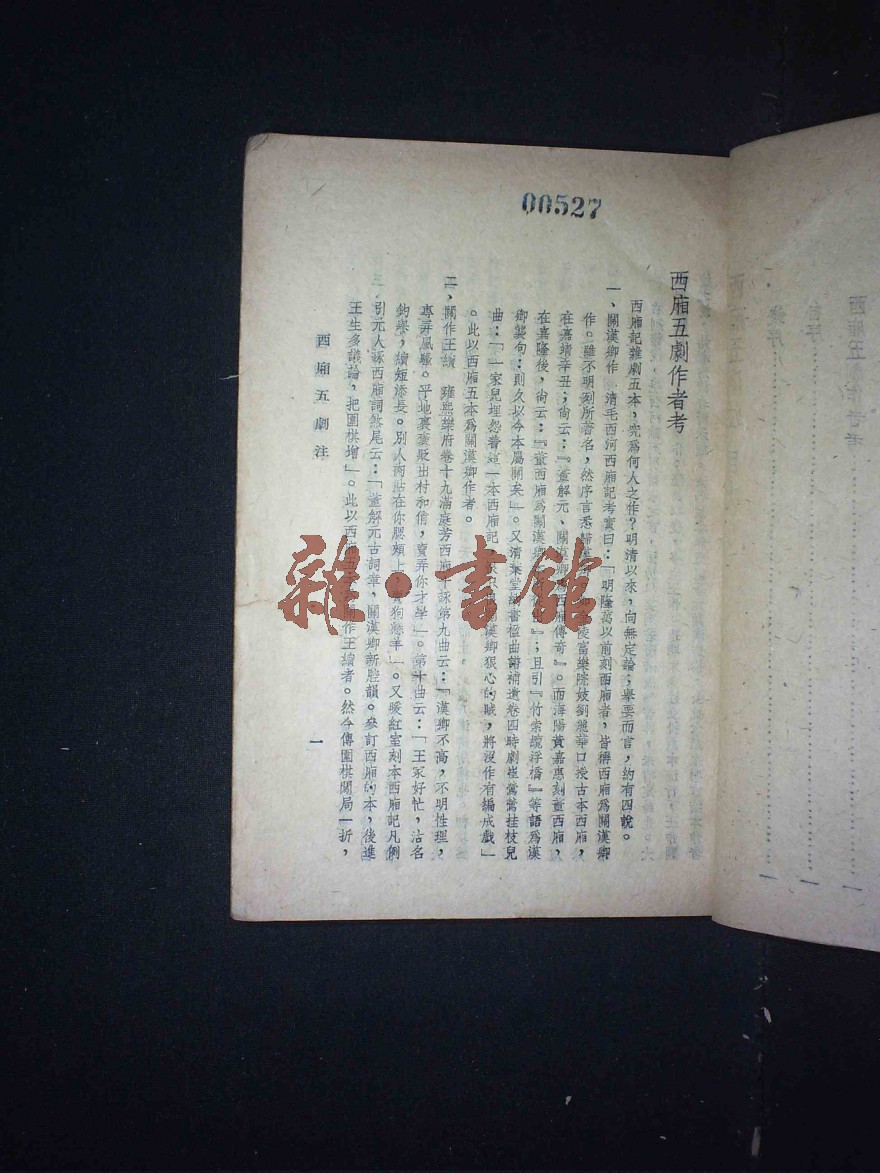 00527
西廂五劇作者考
西廂記雜劇五本，究為何人之作？明清以來，向無定論；舉要而言，約有四說。
一、關漢卿作　清毛西河西廂記考實曰：「明隆萬以前刻西廂者，皆稱西廂為關漢卿
作。雖不明列所著名，然序言悉歸漢卿。如金陵富樂院妓劉麗華口授古本西廂，
在嘉靖辛丑；尙云：『董解元、關漢卿為西廂傳奇』。而海陽黃嘉惠刻董西廂，
在嘉隆後，尙云：『董西廂為關漢卿本所從出』；且引『竹索纜浮橋』等語為漢
卿襲句：則久以今本屬關矣」。又清葉堂納書楹曲譜補遺卷四時劇崔鶯鶯挂枝兒
曲：「一家兒埋怨着這一本西廂記，只只恨關漢卿狠心的賊，將沒作有編成戲」
。此以西廂五本為關漢卿作者。
二、關作王續　雍熙樂府卷十九滿庭芳西廂十詠第九曲云：「漢卿不高，不明性理，
專弄風騷。平地裏褒貶出村和俏，賣弄你才學」。第十曲云：「王家好忙，沽名
釣譽，續短添長。別人肉貼在你腮頰上，賣狗懸羊」。又暖紅室刻本西廂記凡例
三，引元人詠西廂詞煞尾云：「董解元古詞章，關漢卿新腔韻。參訂西廂的本，後進
王生多議論，把圍棋增」。此以西廂五本為關作王續者。然今傳圍棋闖局一折，
西廂五劇注
一
雜·書館